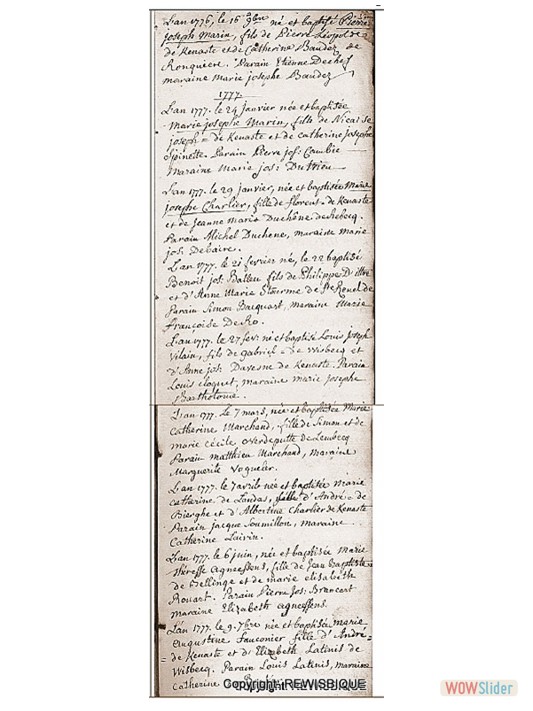 L'an 1776, le 16 9bre né et baptisé Pierre
joseph Marin, fils de Pierre Léopold =
de Kenaste et de Catherine Baudez de
Ronquiere. Parain Etienne Dechef
maraine marie josephe Baudez
1777.
L'an 1777. le 24 janvier née et baptisée
Marie josephe Marin, fille de Nicaise
joseph = de Kenaste et de catherine josephe
Spinette. Parain Pierre jos: Cambie
Maraine Marie jos: Dutrieu
L'an 1777. le 29 janvier, née et baptisée Marie
josephe Charlier, fille de florent = de Kenaste
et de Jeanne marie Duchêne de Rebecq.
Parain Michel Duchene, maraine marie
jos: Debaire.
L'an 1777. le 21 fevrier né, le 22 baptisé
Benoit jos: Balleu fils de Philippe D'ittre
et d'Anne Marie de Ste
Parain Simon Bacquart, maraine Marie
françoise De Ro.
L'an 1777. le 27 fevr né et baptisé Louis joseph
Vilain, fils de gabriel = de wisbecq et
d'Anne jos: Davesne de Kenaste. Parain
Louis cloquet, maraine marie josephe
Bartholomé.
L'an 1777. Le 7 mars, née et baptisée Marie
Catherine Marchand, fille de Simon et de
marie cécile overdeputte de Lembecq
Parain matthieu Marchand, maraine
Marguerite Voqueur.
L'an 1777. le 7 avrile née et baptisée marie
catherine de Landas, fille d'André = de
Bierghe et d'Albertine Charlier de Kenaste
Parain jacque Soumillon, maraine
Catherine Lairin.
L'an 1777. le 6 juin, née et baptisée marie
thérèse agneessens, fille de Jean baptiste =
de Bellinge et de marie elisabeth
Rouart. Parain Pierre jos: Brancart
maraine Elizabeth agneessens.
L'an 1777. le 9. 7bre née et baptisée marie
augustine fauconier fille d'André =
de Kenaste et d'Elizabeth Latinis de
Wisbecq. Parain Louis Latinis, maraine
catherine
Copyright:REWISBIQUE
WOWSlider